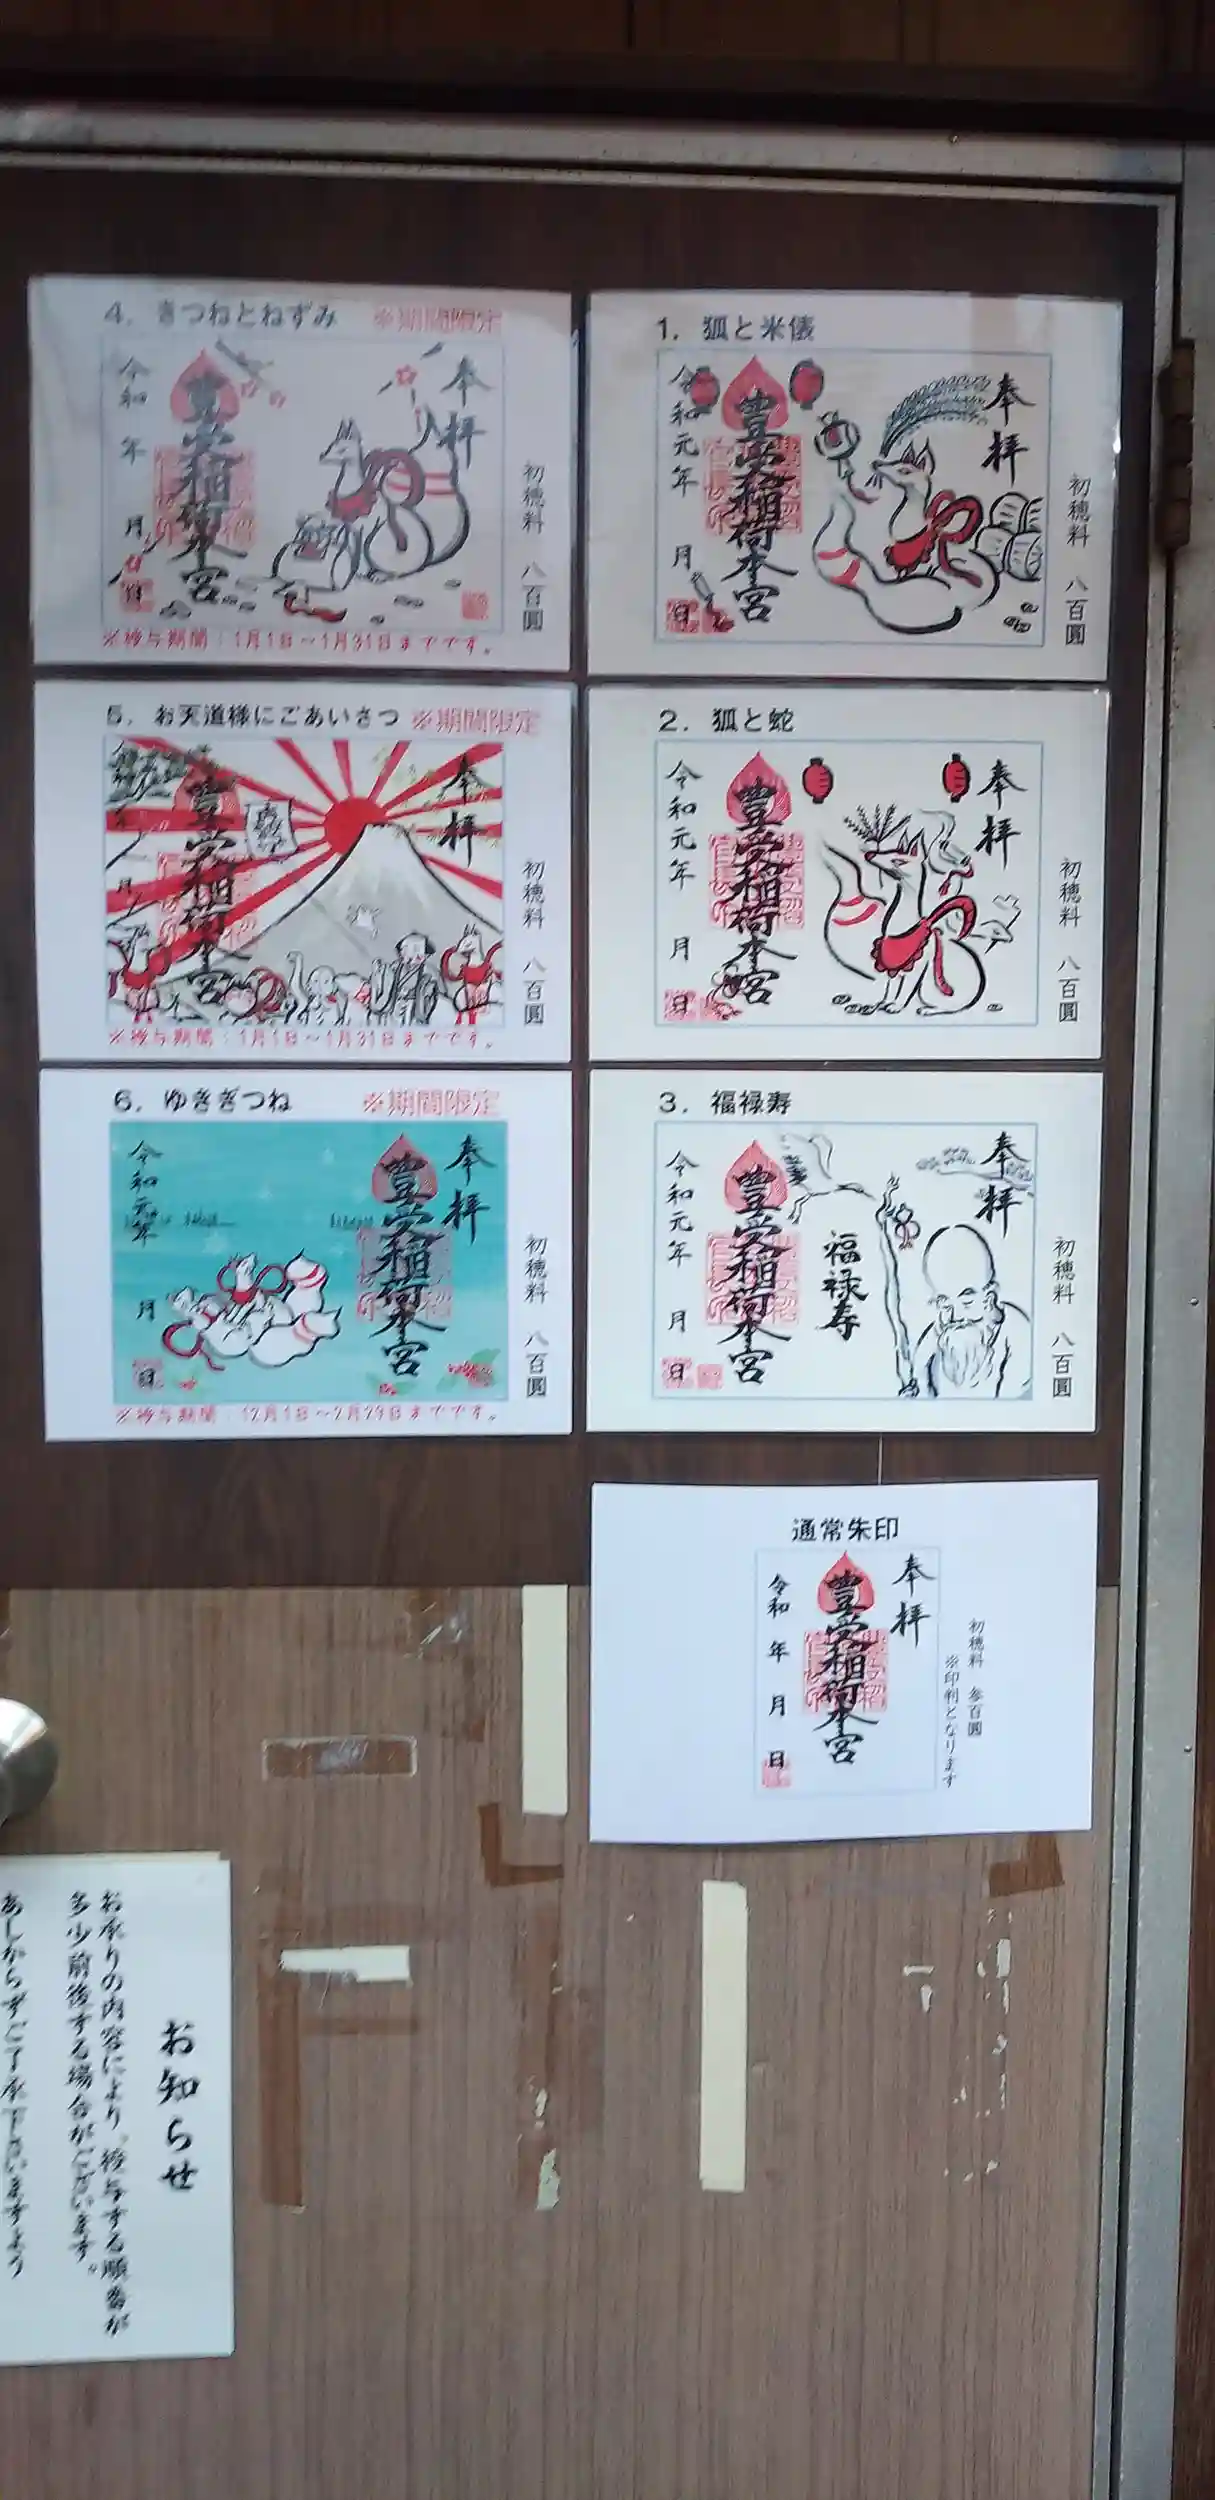 1. 狐と米俵
奉拝
豊受稲荷本宮
令和元年 月 日
初穂料 八百圓
2. 狐と蛇
奉拝
豊受稲荷本宮
令和元年 月 日
初穂料 八百圓
3. 福禄寿
奉拝
福禄寿
豊受稲荷本宮
令和元年 月 日
初穂料 八百圓
4. きつねとねずみ ※期間限定
奉拝
豊受稲荷本宮
令和 年 月 日
初穂料 八百圓
※授与期間:1月1日~1月31日までです。
5. お天道様にごあいさつ ※期間限定
奉拝
豊受稲荷本宮
月
初穂料 八百圓
※授与期間:1月1日~1月31日までです。
6. ゆきぎつね ※期間限定
奉拝
豊受稲荷本宮
令和元年 月 日
初穂料 八百圓
※授与期間:12月1日~2月29日までです。
通常朱印
初穂料 参百圓
※印判となります
奉拝
豊受稲荷本宮
令和 年 月 日
お知らせ
お承りの内容により、授与する順番が
多少前後する場合がございます。
あしからずご了承下さいますよう